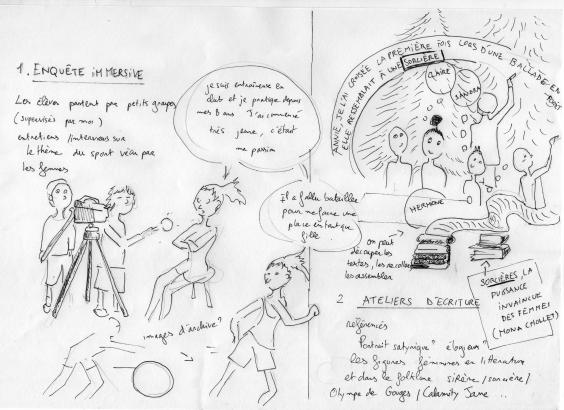 1. ENQUÊTE IMMERSIVE
Les élèves partent par petits groupes
(supervisés par moi)
entretiens / interviews sur
le thème du sport vécu par
les femmes
je suis entraîneuse en
club et je pratique depuis
mes 6 ans J'ai commencé
très jeune, c'était
ma passion
Il a fallu batailler
pour me faire une
place en tant que
fille
images d'archive?
ANNIE, JE L'AI CROISÉE LA PREMIÈRE FOIS LORS D'UNE BALLADE EN FORÊT
ELLE RESSEMBLAIT À UNE SORCIÈRE
CLAIRE
SANDRA
HERMIONE
on peut
découper les
textes, les recoller
les assembler
SORCIÈRES, LA
PUISSANCE
INVAINCUE
DES FEMMES
(MONA CHOLLET)
2 ATELIERS D'ÉCRITURE
référencés
Portrait satyrique? élogieux?
les figures féminines en littérature
et dans le folklore sirène / sorcière /
Olympe de Gouges / Calamity Jane ..